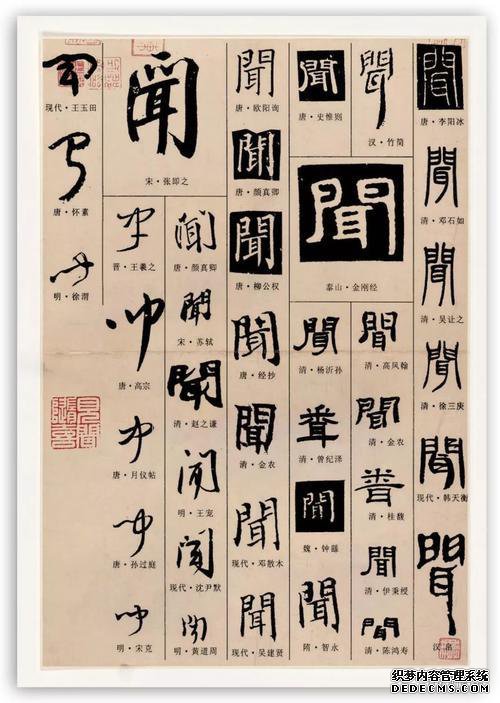 聞
唐·李阳冰
聞
清·邓石如
聞
清·吴让之
聞
清·徐三庚
聞
现代·韩天衡
聞
汉帛
聞
汉·竹简
聞
泰山·金刚经
聞
清·高凤翰
聞
清·金农
清·桂馥
聞
清·伊秉绶
聞
清·陈鸿寿
聞
唐·史惟则
聞
清·杨沂孙
清·曾纪泽
聞
魏·钟繇
聞
隋·智永
聞
唐·欧阳询
聞
唐·颜真卿
聞
唐·柳公权
聞
唐·经抄
聞
清·金农
聞
现代·邓散木
聞
现代·吴建贤
聞
宋·张即之
聞
唐·颜真卿
聞
宋·苏轼
聞
清·赵之谦
聞
明·王宠
聞
现代·沈尹默
聞
明·黄道周
晋·王羲之
唐·高宗
唐·月仪帖
唐·孙过庭
明·宋克
现代·王玉田
唐·怀素
明·徐渭
見聞
隨喜
织梦内容管理系统
DEDECMS.COM